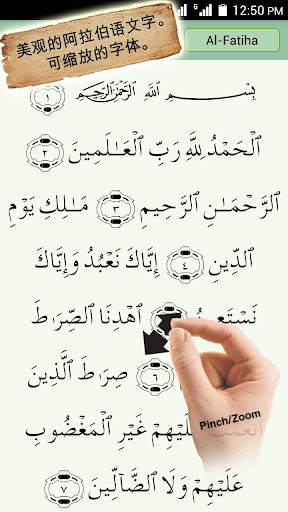 12:50 PM
美观的阿拉伯语文字。
可缩放的字体。
Al-Fatiha
بِسْمِ ٱللَّهِ ٱلرَّحْمَٰنِ ٱلرَّحِيمِ ١
ٱلْحَمْدُ لِلَّهِ رَبِّ ٱلْعَـٰلَمِينَ ٢
ٱلرَّحْمَـٰنِ ٱلرَّحِيمِ ٣ مَـٰلِكِ يَوْمِ
ٱلدِّينِ ٤ إِيَّاكَ نَعْبُدُ وَإِيَّاكَ
نَسْتَعِينُ ٱهْدِنَا ٱلصِّرَٰطَ
٦ صِرَٰطَ ٱلَّذِينَ
عَلَيْهِمْ غَيْرِ ٱلْمَغْضُوبِ
عَلَيْهِمْ وَلَا ٱلضَّآلِّينَ ٧
Pinch/Zoom